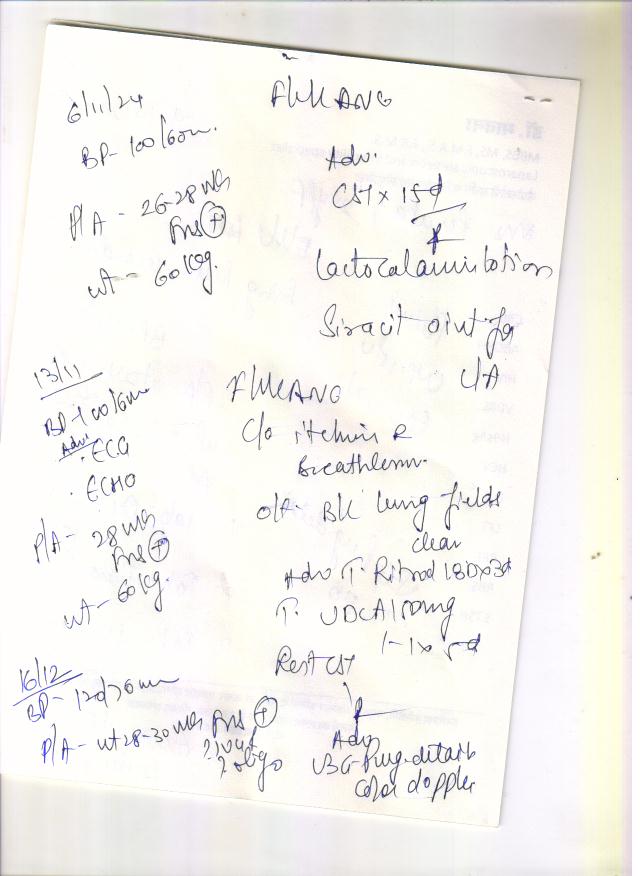 6/11/24
BP- 100/60mm.
P/A - 26-28 wks
FHS (+)
wt - 60 kg.
F/U/C ANC
Adv.
CST x 15d
Lactocalamin lotion
oint for
L/A
13/11
BP-100/60mm
Adv.
· ECG
· ECHO
P/A- 28 wks
FHS (+)
wt- 60 kg.
F/U/C ANC
C/o itching &
Breathlessn.
O/A- B/L lung fields
clear
Adv T. BD x 3d
T. UDCA 150mg
1-1 x 5d
Rest CST
16/12
BP- 120/70mm
P/A - ut 28-30 wks FHS (+)
Adv
USG-Preg-details
Color doppler